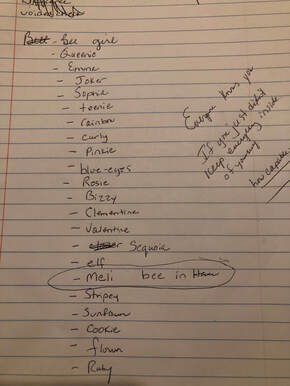 Bee - bee girl
- Queenie
- Emma
- Joker
- Sophie
- teenie
- rainbow
- curly
- Pinkie
- blue-eyes
- Rosie
- Bizzy
- Clementine
- Valentine
- Sequoia
- elf
- Meli bee in
- Stripey
- Sunfawn
- Cookie
- flown
- Ruby
Everyone knows you
If you just didn't
keep everyone inside
of yourself
how capable